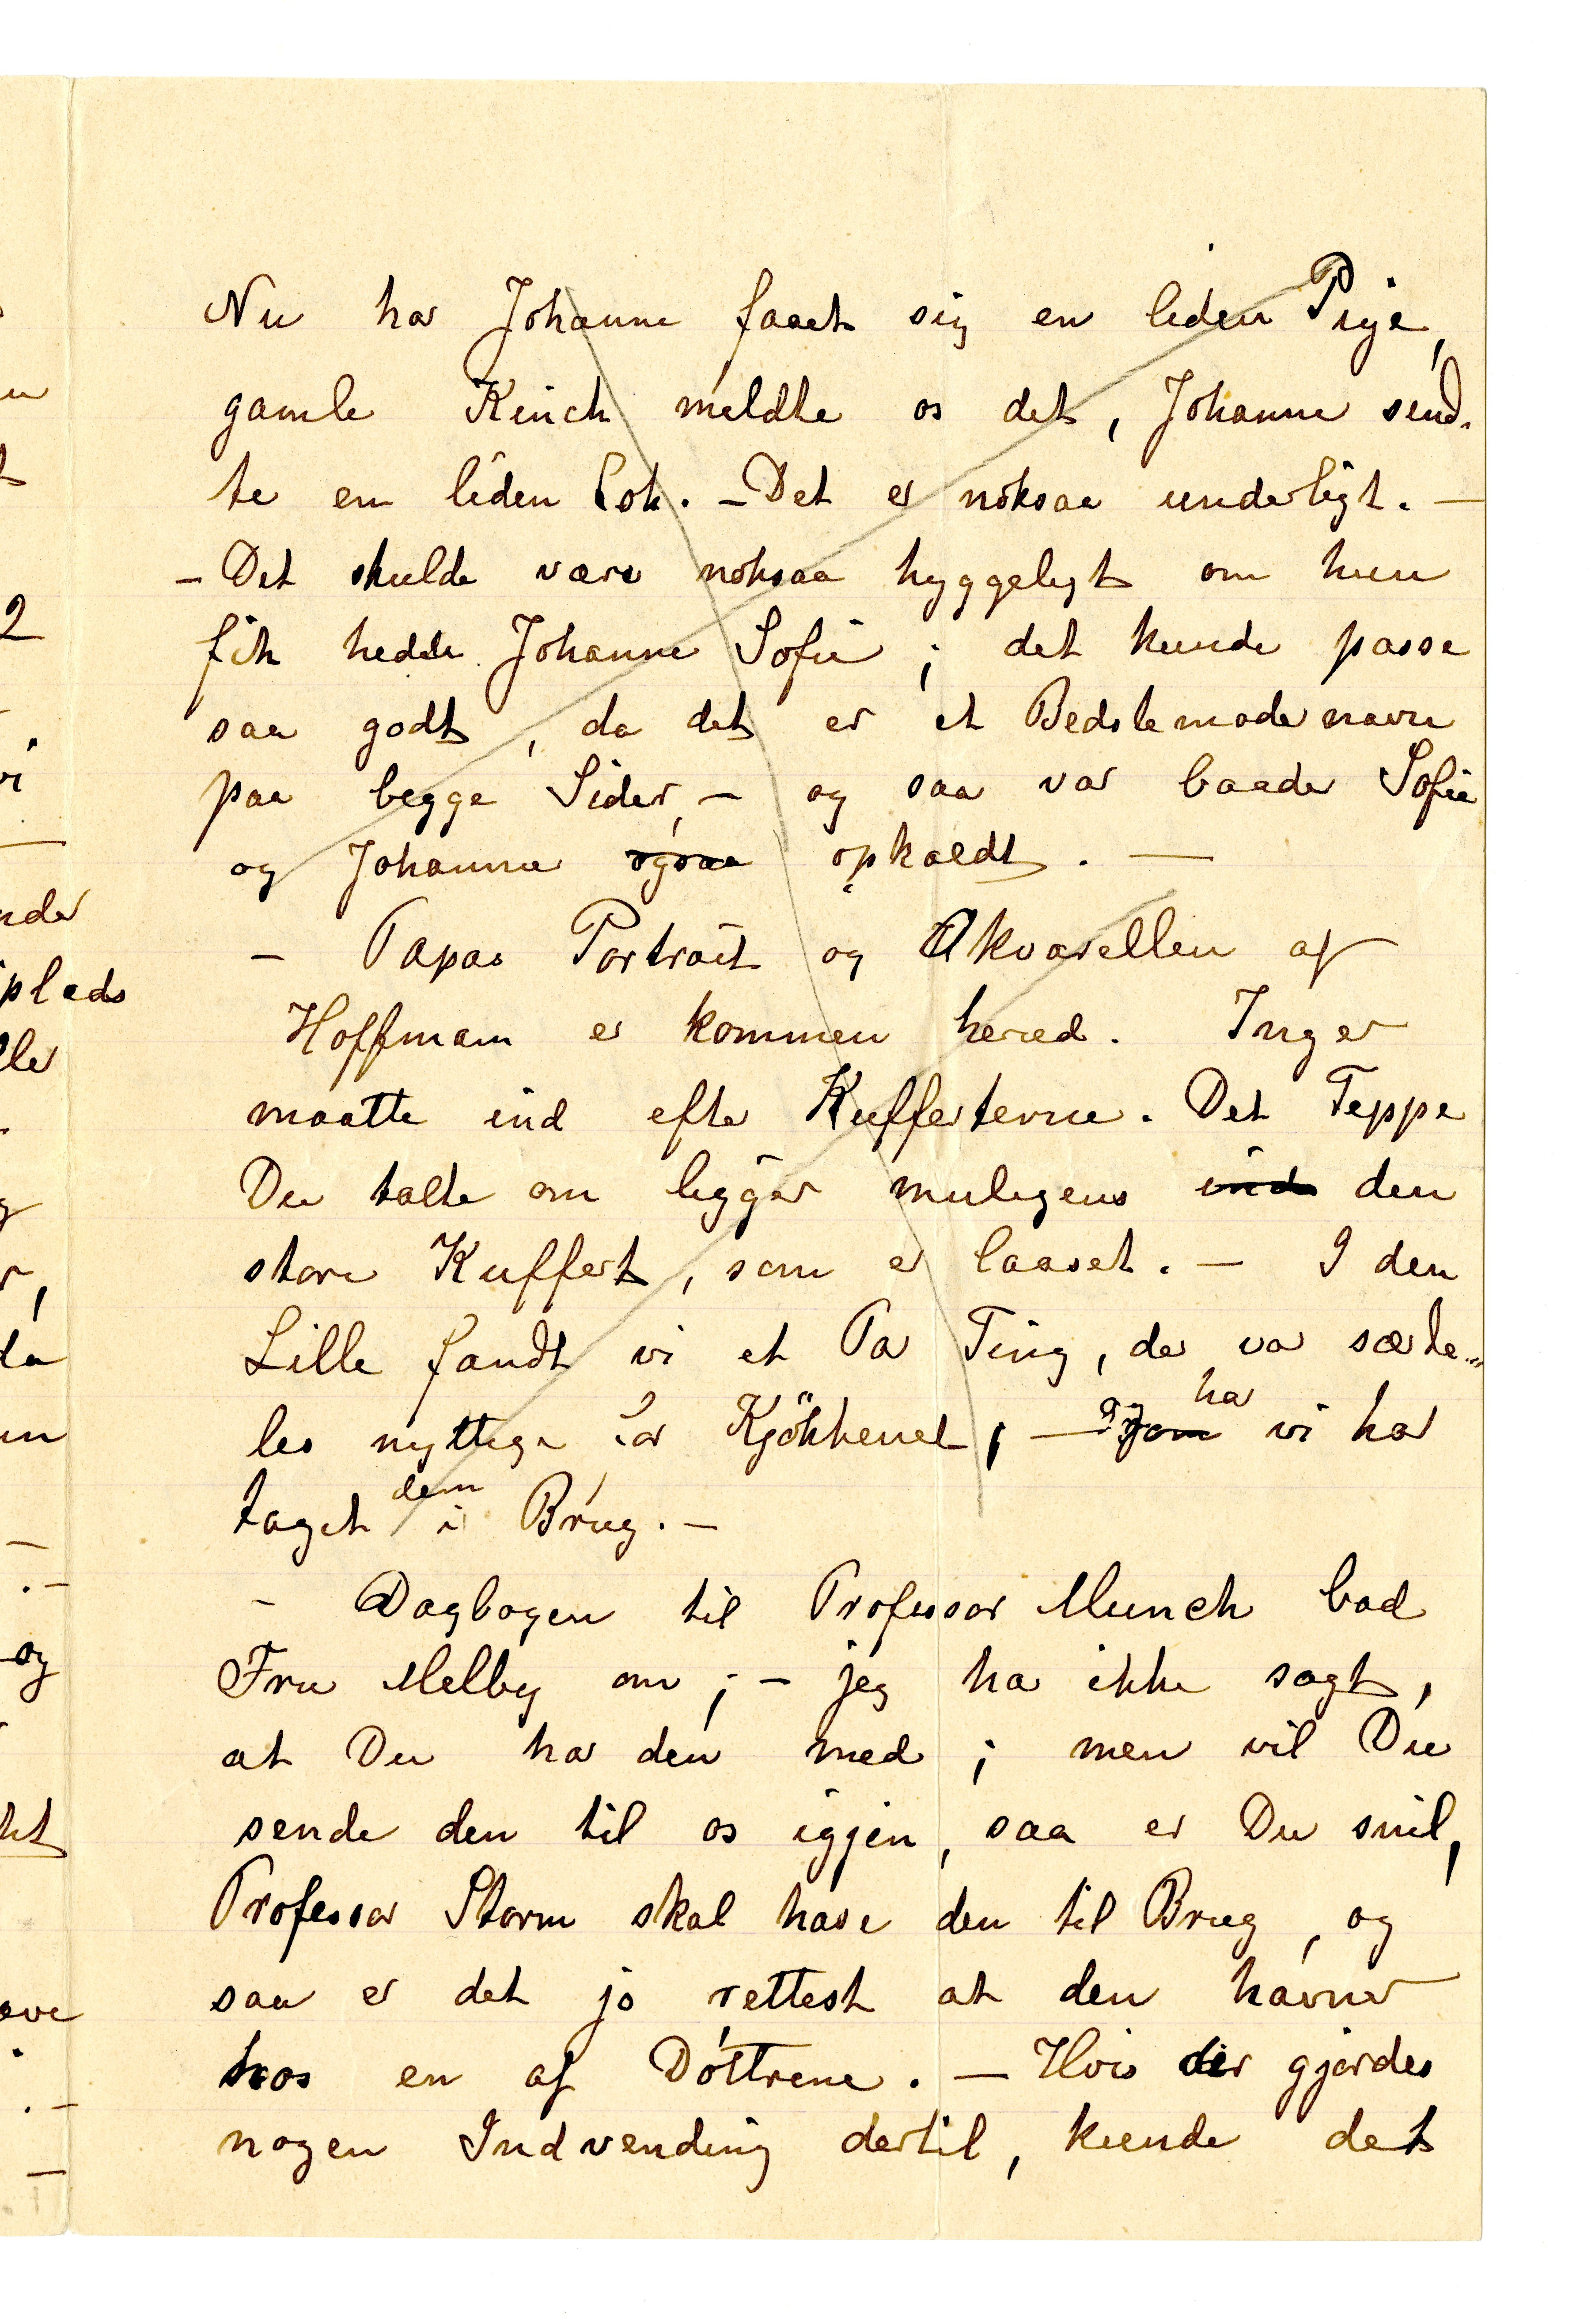 Nu har Johanne faaet sig en liden Pige,
gamle Kinch meldte os det, Johanne send-
te en liden Lok. – Det er noksaa underligt. –
– Det skulde være noksaa hyggeligt om hun
fik hedde Johanne Sofie ; det kunde passe
saa godt, da det er et Bedstemodernavn
paa begge Sider, – og saa var baade Sofie
og Johanne ogsaa opkaldt. –
– Papas Portrait og Akvarellen af
Hoffmann er kommen herved. Inger
maatte ind efter Kufferterne. Det Teppe
Du talte om ligger muligens ind den
store Kuffert, som er laaset. – I den
Lille fandt vi et Par Ting, der var særde-
les nyttige for Kjökkenet, – og har vi har
taget dem i Brug. –
– Dagbogen til Professor Munch bad
Fru Melby om ; – jeg har ikke sagt,
at Du har den med ; men vil Du
sende den til os igjen, saa er Du snil,
Professor Storm skal have den til Brug, og
saa er det jo rettest at den havner
hos en af Döttrene. – Hvis der gjordes
nogen Indvending dertil, kunde det
nder
pleds
lle
og
2
vi